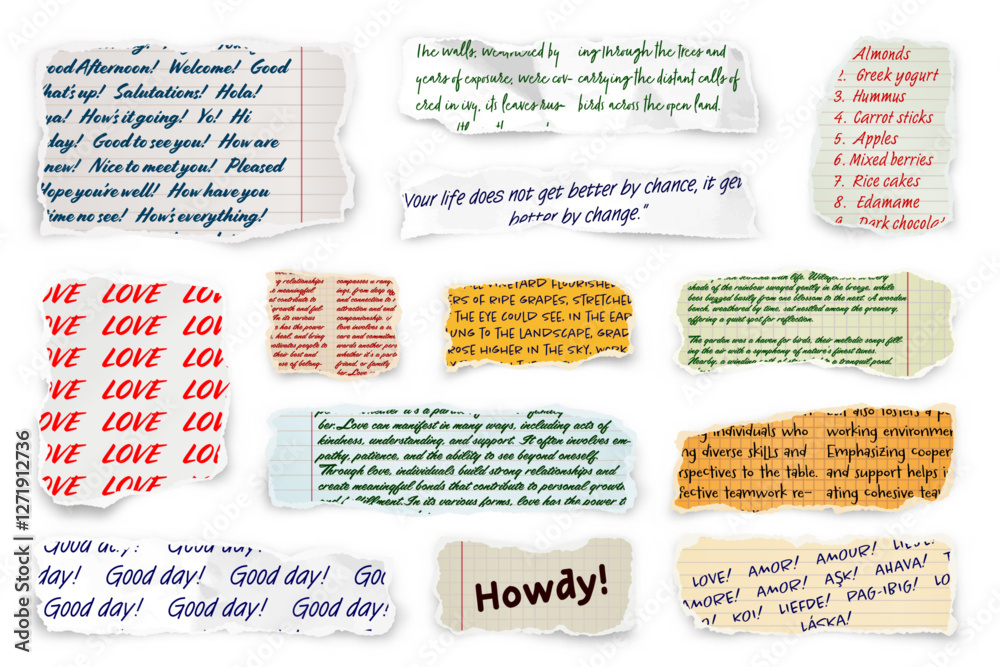 ood Afternoon! Welcome! Good
hat's up! Salutations! Hola!
ya! How's it going! Yo! Hi
day! Good to see you! How are
new! Nice to meet you! Pleased
Hope you're well! How have you
ime no see! How's everything!
The walls, weathered by
years of exposure, were cov-
ered in ivy, its leaves rus-
ing through the trees and
carrying the distant calls of
birds across the open land.
Almonds
2. Greek yogurt
3. Hummus
4. Carrot sticks
5. Apples
6. Mixed berries
7. Rice cakes
8. Edamame
9. Dark chocolat
Your life does not get better by chance, it get
better by change."
OVE LOVE LOV
OVE LOVE LOV
OVE LOVE LOV
OVE LOVE LOV
OVE LOVE LOV
OVE LOVE LOV
OVE LOVE LO
ng relationships
meaningful
at contribute to
growth and
its various
has the power
heal, and bring
otivates people to
their best and
of belong-
compasses a rang-
ings, from deep af-
and connection to
attraction and
companionship.
love involves a
care and commitme
words another pers
whether it's a par
friend, or family
ber. Love
VINEYARD FLOURISHED
ERS OF RIPE GRAPES, STRETCHED
THE EYE COULD SEE. IN THE EAR
UNG TO THE LANDSCAPE, GRAD
ROSE HIGHER IN THE SKY, WORK
shade of the rainbow swayed gently in the breeze, while
bees buzzed busily from one blossom to the next. A wooden
bench, weathered by time, sat nestled among the greenery,
offering a quiet spot for reflection.
The garden was a haven for birds, their melodic songs fill-
ing the air with a symphony of nature's finest tunes.
Nearby, a tranquil pond,
ber. Love can manifest in many ways, including acts of
kindness, understanding, and support. It often involves em-
pathy, patience, and the ability to see beyond oneself.
Through love, individuals build strong relationships and
create meaningful bonds that contribute to personal growth
and fulfillment. In its various forms, love has the power t
g individuals who
ng diverse skills and
rspectives to the table.
fective teamwork re-
also fosters a p
working environmen
Emphasizing cooper
and support helps i
ating cohesive tea
Good day! Good day!
day! Good day! Good day! Go
Good day! Good day! Good day!
Howdy!
LOVE! AMOR! AMOUR! LIEBE!
AMORE! AMOR! AŞK! AHAVA! LO
! KOI! LIEFDE! PAG-IBIG! L
LÁSKA!
Adobe Stock | #1271912736